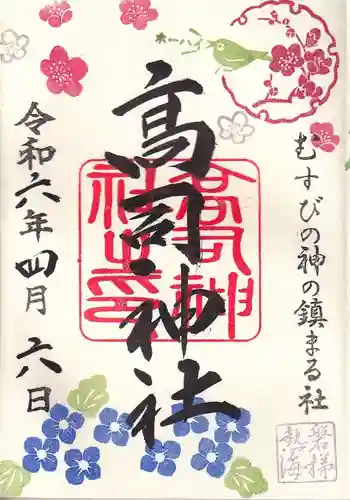 むすびの神の鎮まる社
高司神社
高司神社之印
令和六年四月六日
磐梯熱海
ホーホ